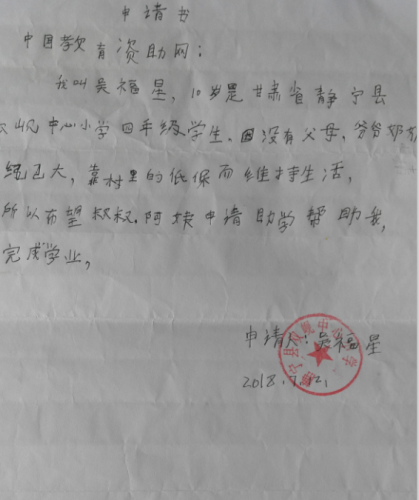 申请书
中国教育资助网：
我叫吴福星，10岁是甘肃省静宁县
岘中心小学四年级学生、因没有父母，爷爷奶
纪已大，靠村里的低保而维持生活，
所以希望叔叔、阿姨申请助学帮助我，
完成学业。
申请人：吴福星
2018.
静宁县 岘中心小学